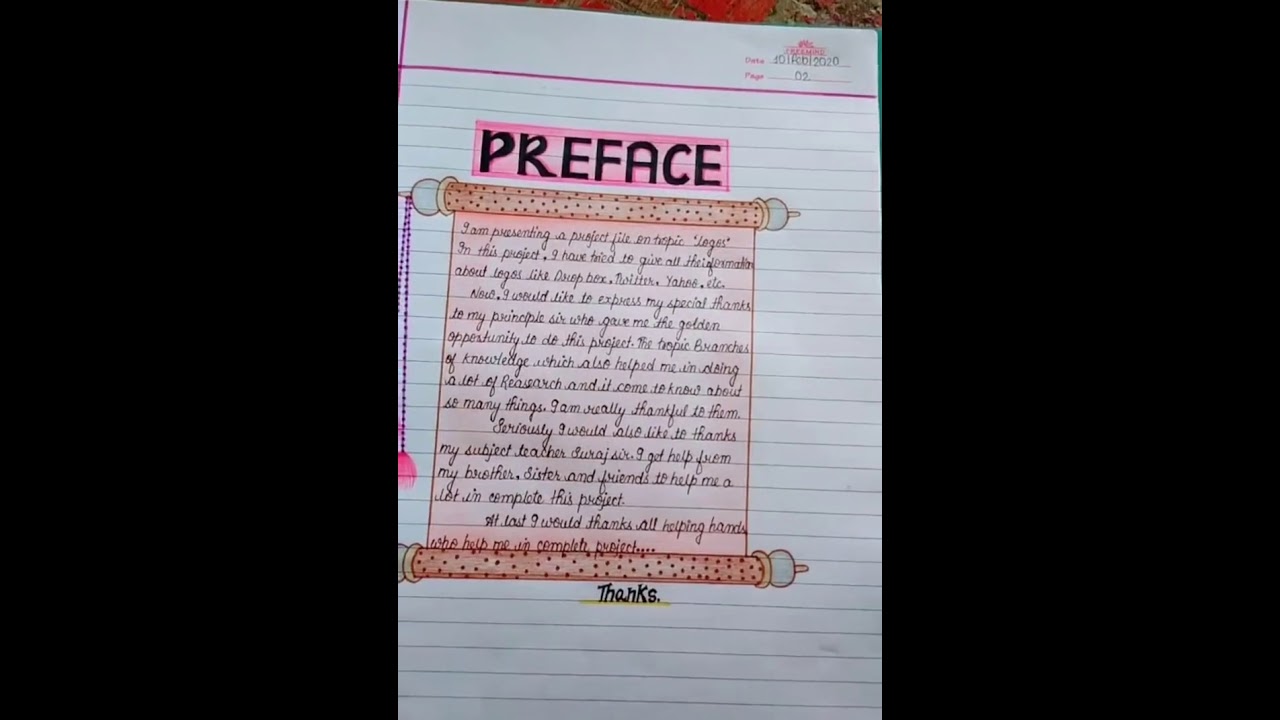 FREEMIND
Date 10|Feb|2020
Page 02
PREFACE
I am presenting a project file on tropic "logos"
In this project, I have tried to give all the iformation
about logos like Drop box, Twitter, Yahoo, etc.
Now, I would like to express my special thanks
to my principle sir who gave me the golden
opportunity to do this project. The tropic Branches
of knowledge which also helped me in doing
a lot of Reasearch and it come to know about
so many things. I am really thankful to them.
Seriously I would also like to thanks
my subject teacher Suraj sir. I get help from
my brother, Sister and friends to help me a
lot in complete this project.
At last I would thanks all helping hands
who help me in complete project....
Thanks.